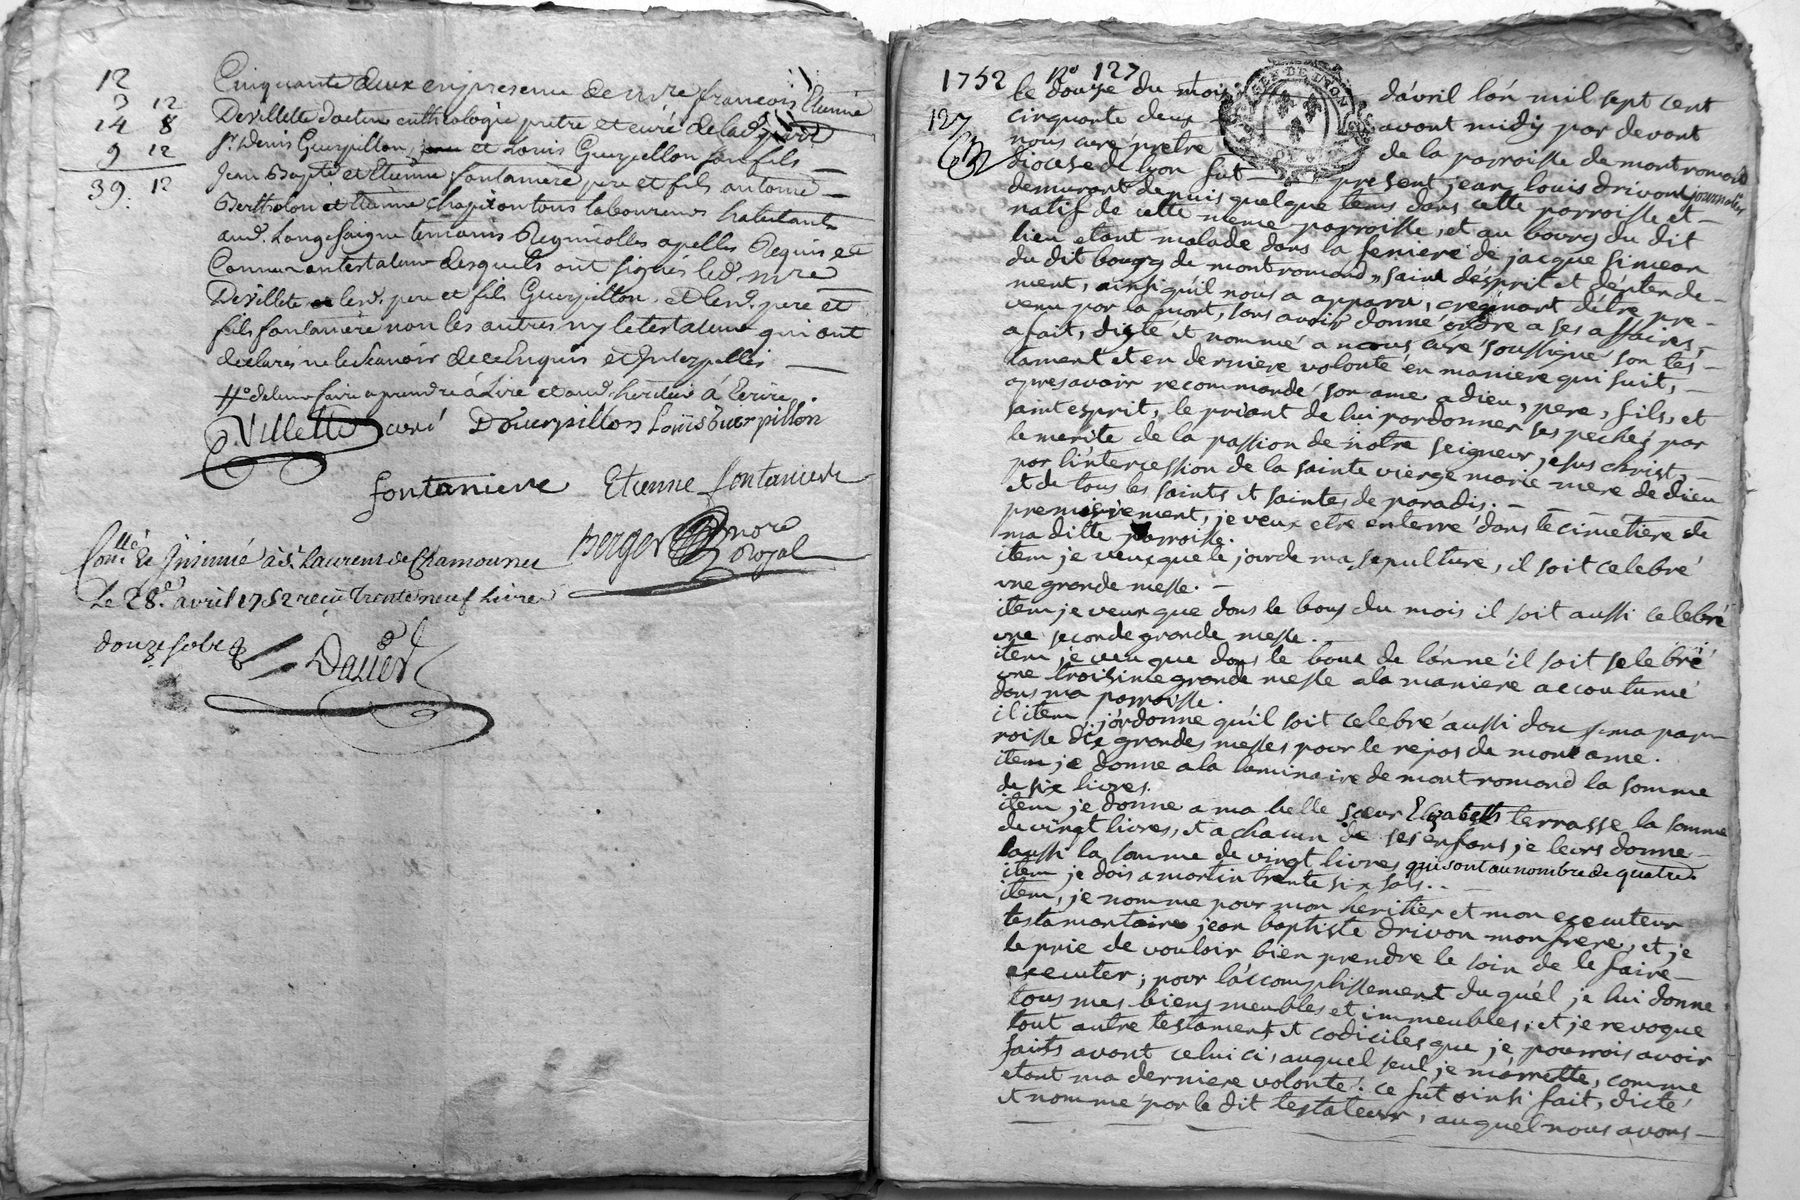 12
3 12
14 8
9 12
39. 12
Cinquante deux en presence de mre francois Etienne
Devillette docteur en theologie pretre et curé de lad.
Sr. Denis Guerpillon, et Louis Guerpillon son fils
Jean Bapte. et Etienne fontaniere pere et fils antoine
Berthelon et Etienne Chapiron tous laboureurs habitants
aud. Longesaigne temoins Regnicolles apelles Requis et
Connus au testateur desquels ont signés led. mre
Devillette lesd. pere et fils Guerpillon, et lesd. pere et
fils fontaniere non les autres ny le testateur qui ont
declarés ne le scavoir de ce Enquis et Interpellés
faire aprendre à Lire et aud. heritier à Ecrire.
Villette curé DGuerpillon Loüis Guerpillon
fontaniere Etienne fontaniere
berger nore Royal
Conllé Et Insinué à St. Laurent de Chamousset
Le 28e. avril 1752 receu Trente neuf Livre
douze sols
Dauer
1752 No 127
127
le douze du mois d'avril l'an mil sept cent
cinquante deux avant midy par devant
nous curé pretre de la parroisse de montromand
diocese de lyon fut present jean louis drivon journalier
demurant depuis quelque tems dans cette parroisse et
natif de cette meme parroisse, et au bourg du dit
lieu etant malade dans la feniere de jacque simean
du dit bourg de montromand, saint d'ésprit et d'enten de-
ment, ainsi qu'il nous a apparu, creignant d'être pre-
venu par la mort, sans avoir donné ordre a ses affaires,
a fait, dicté et nommé a nous curé soussigné son tes-
tament et en derniere volonté en maniere qui suit,
apres avoir recommandé son ame a dieu, pere, fils, et
saint esprit, le priant de lui pardonner ses pechés par
le merite de la passion de notre seigneur jesus christ,
par l'intercession de la sainte vierge marie mere de dieu
et de tous les saints et saintes de paradis.
premierement, je veux etre enterré dans le cimetiere de
ma ditte parroisse.
item je veux que le jour de ma sepulture, il soit celebré
une grande messe.
item je veux que dans le bous du mois il soit aussi celebré
une seconde grande messe.
item je veu que dans le bous de l'année il soit selebré
une troisime grande messe a la maniere accoutumé
dans ma parroisse.
item, j'ordonne qu'il soit celebré aussi dan ma par-
roisse dix grandes messes pour le repos de mon ame.
item je donne a la luminaire de montromand la somme
de six livres.
item je donne a ma belle sœur Elizabeth terrasse la somme
de vingt livres, et a chacun de ses enfans je leurs donne
aussi la somme de vingt livres qui sont au nombre de quatre.
item je dois a martin trente six sols.
item, je nomme pour mon heritier et mon executeur
testamantaire jean baptiste drivon mon frere, et je
le prie de vouloir bien prendre le soin de le faire
executer; pour l'accomplissement du quel je lui donne
tous mes biens meubles et immeubles; et je revoque
tout autre testament et codiciles que je pourrois avoir
faits avant celui ci, auquel seul je m'arrette, comme
etant ma derniere volonté. ce fut ainsi fait, dicté
et nomme par le dit testateur, auquel nous avons